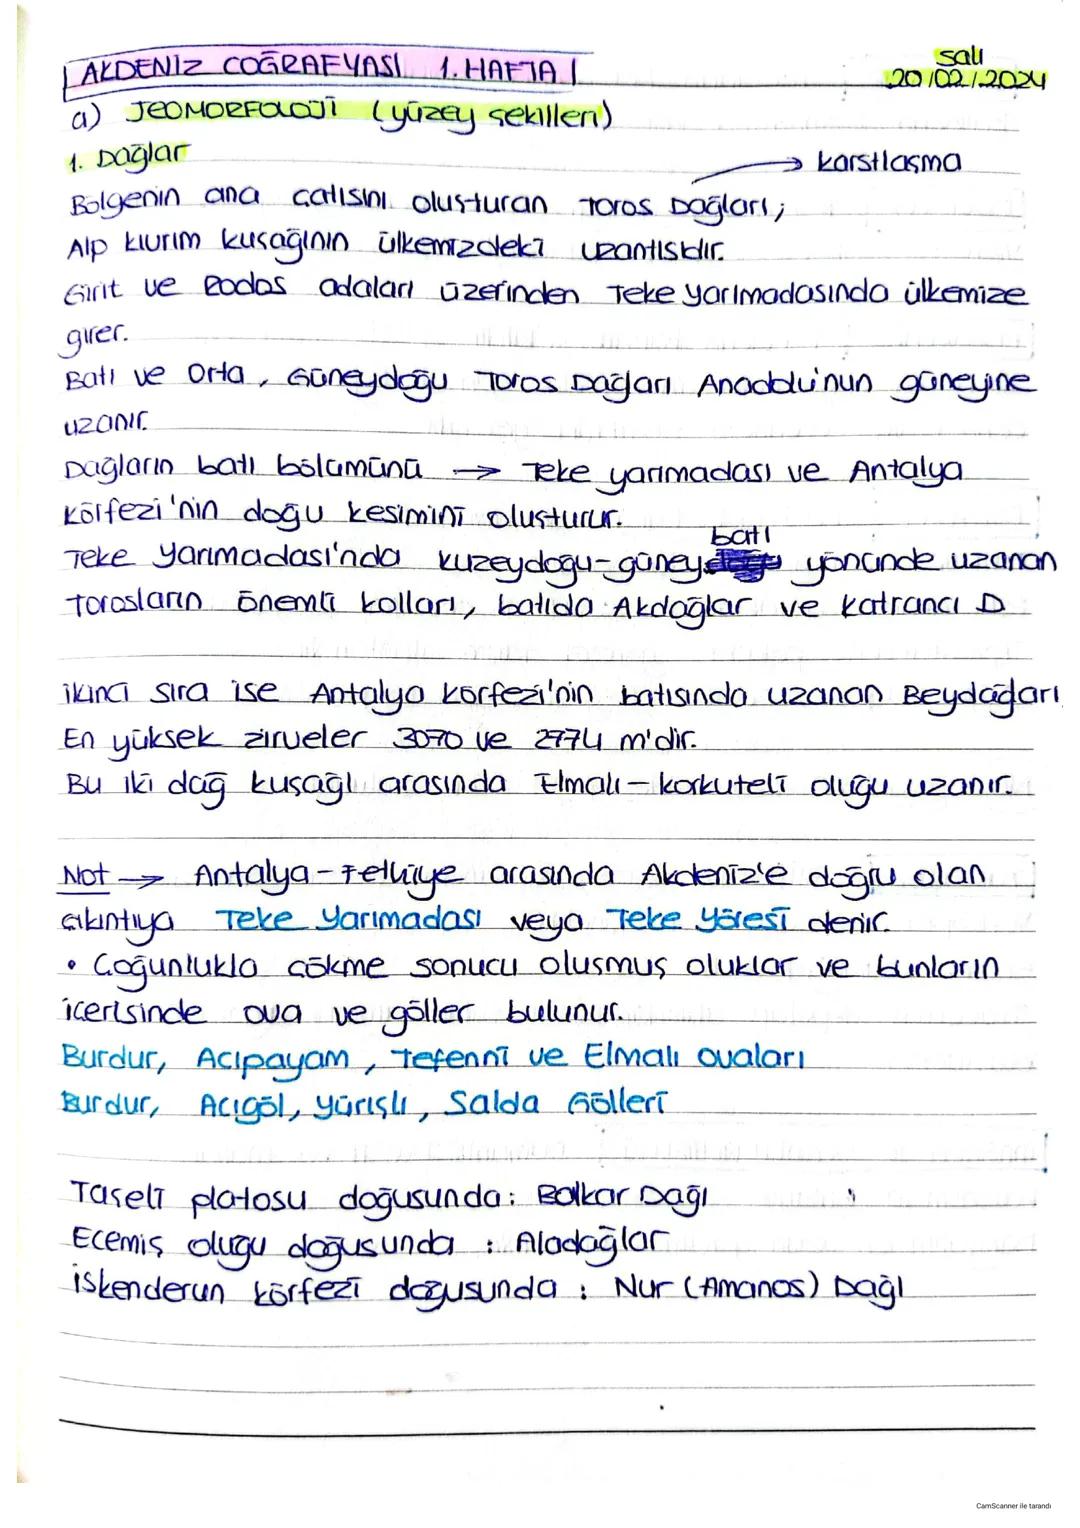 AKDENİZ COĞRAFYASI 1. HAFTA
Salı
20/02/2024
a) JEOMORFOLOJİ (yüzey şekilleri)
1. Dağlar
→ karstlaşma
Bölgenin ana çatısını oluşturan Toros Dağları;
Alp kıvrım kuşağının ülkemizdeki uzantısıdır.
Girit ve Rodos adaları üzerinden Teke yarımadasında ülkemize
girer.
Batı ve Orta, Güneydoğu Toros Dağları Anadolu'nun güneyine
uzanır.
Dağların batı bölümünü → Teke yarımadası ve Antalya
Körfezi'nin doğu kesimini oluşturur.
batı
Teke Yarımadası'nda kuzeydoğu-güney yönünde uzanan
Torosların önemli kolları, batıda Akdağlar ve Katrancı D
ikinci sıra ise Antalya Körfezi'nin batısında uzanan Beydağarı
En yüksek zirveler 3070 ve 2774 m'dir.
Bu iki dağ kuşağı arasında Elmalı-Korkuteli oluğu uzanır.
Not → Antalya-Fethiye arasında Akdeniz'e doğru olan
çıkıntıya Teke Yarımadası veya Teke Yöresi denir.
• Çoğunlukla çökme sonucu oluşmuş oluklar ve bunların
içerisinde ova ve göller bulunur.
Burdur, Acıpayam, Tefenni ve Elmalı ovaları
Burdur, Acıgöl, Yürışlı, Salda Gölleri
Taşeli platosu doğusunda: Bolkar Dağı
Ecemiş oluğu doğusunda : Aladağlar
İskenderun Körfezi doğusunda : Nur (Amanos) Dağı
CamScanner ile tarandı